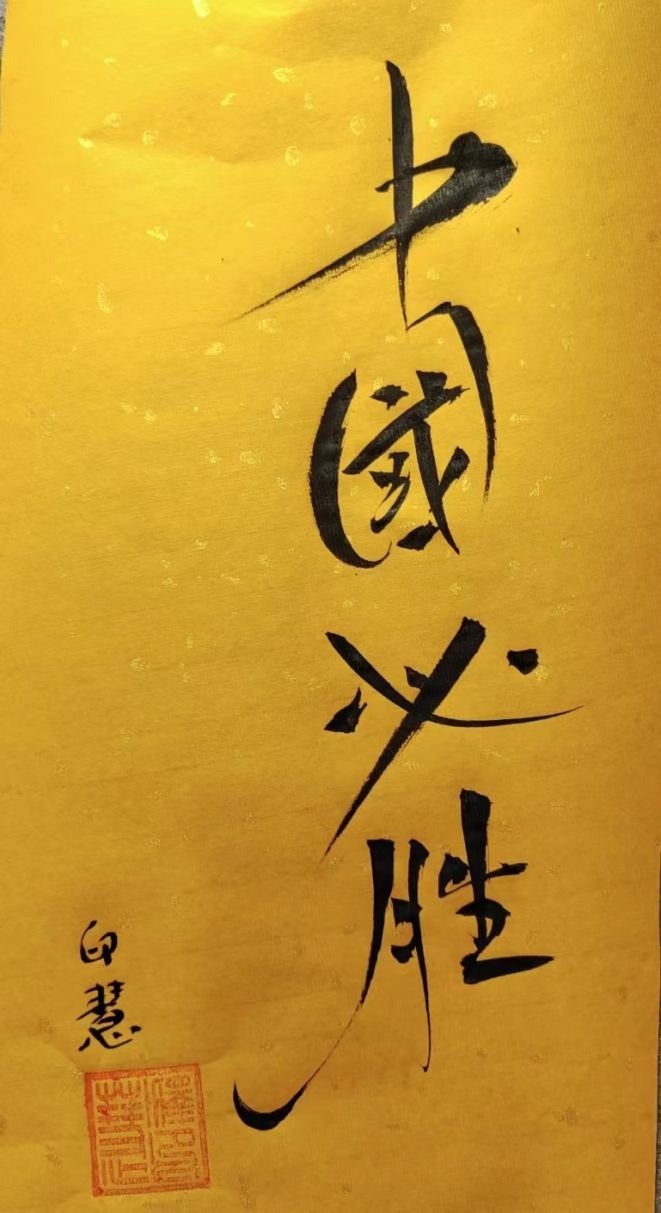 中國必胜
印慧